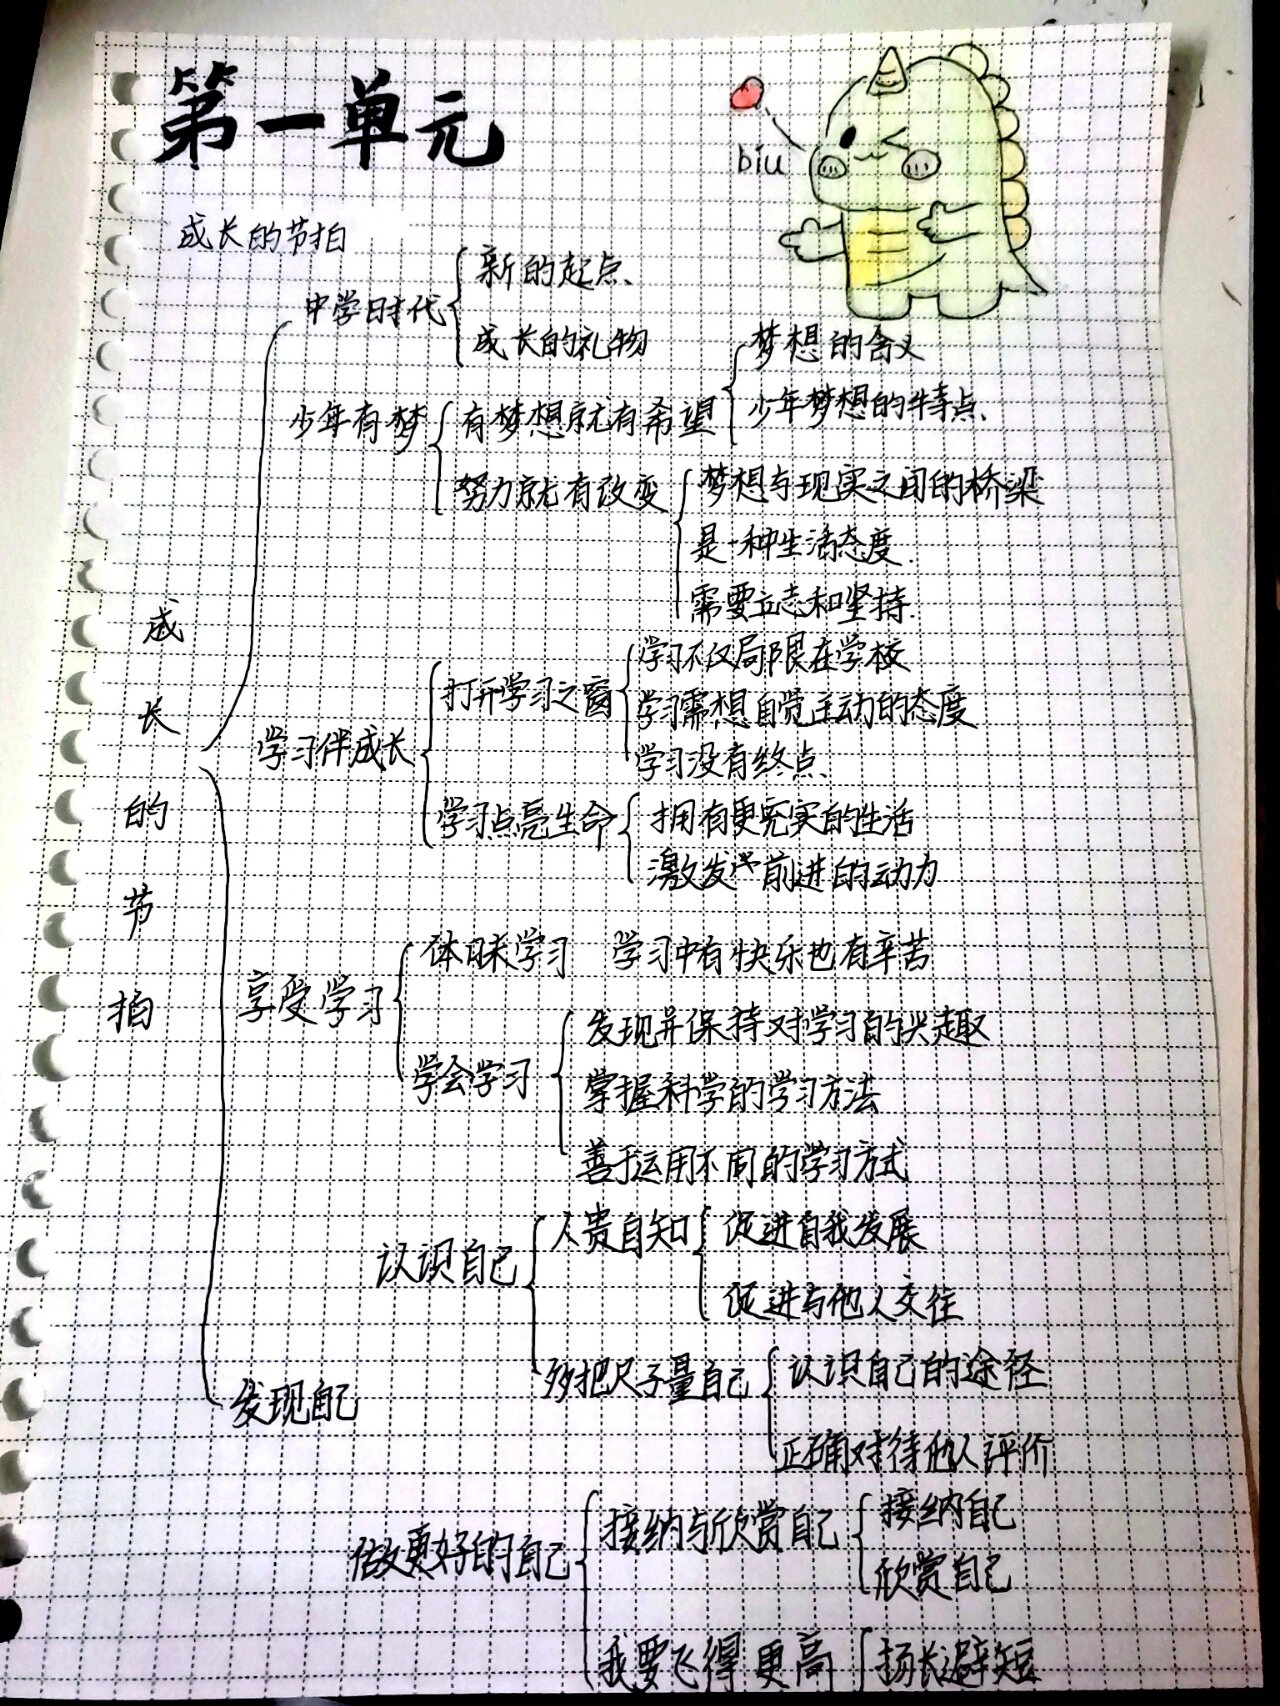 第一单元
biu
成长的节拍
新的起点
中学时代
成长的礼物
梦想的含义
少年有梦
有梦想就有希望
少年梦想的特点
努力就有改变
梦想与现实之间的桥梁
是一种生活态度
需要立志和坚持
成长的节拍
学习不仅局限在学校
打开学习之窗
学习需想自觉主动的态度
学习伴成长
学习没有终点
学习点亮生命
拥有更充实的生活
激发前进的动力
体味学习 学习中有快乐也有辛苦
享受学习
发现并保持对学习的兴趣
学会学习
掌握科学的学习方法
善于运用不同的学习方式
人贵自知
促进自我发展
认识自己
促进与他人交往
多把尺子量自己
认识自己的途径
发现自己
正确对待他人评价
接纳与欣赏自己
接纳自己
做更好的自己
欣赏自己
我要飞得更高
扬长避短